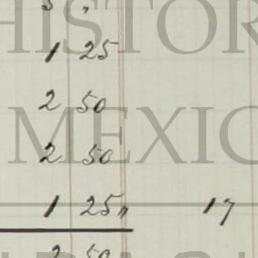 HISTOR
1 25
2 50
MEXIC
2 50
1 25 " 17
2 50